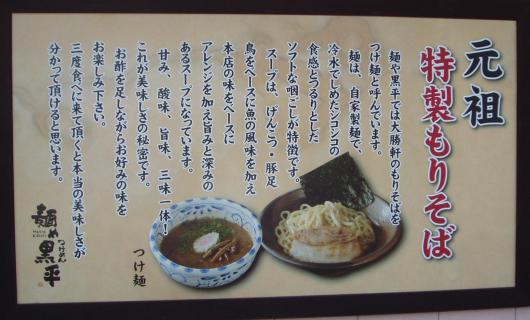 元祖
特製もりそば
麺や黒平では大勝軒のもりそばを
つけ麺と呼んでいます。
麺は、自家製麺で、
冷水でしめたシコシコの
食感とつるりとした
ソフトな咽ごしが特徴です。
スープは、げんこつ・豚足
鳥をベースに魚の風味を加え
本店の味をベースに
アレンジを加え旨みと深みの
あるスープになっています。
甘み、酸味、旨味、三味一体!
これが美味しさの秘密です。
お酢を足しながらお好みの味を
お楽しみ下さい。
三度食べに来て頂くと本当の美味しさが
分かって頂けると思います。
つけ麺
つけめん
麺や黒平